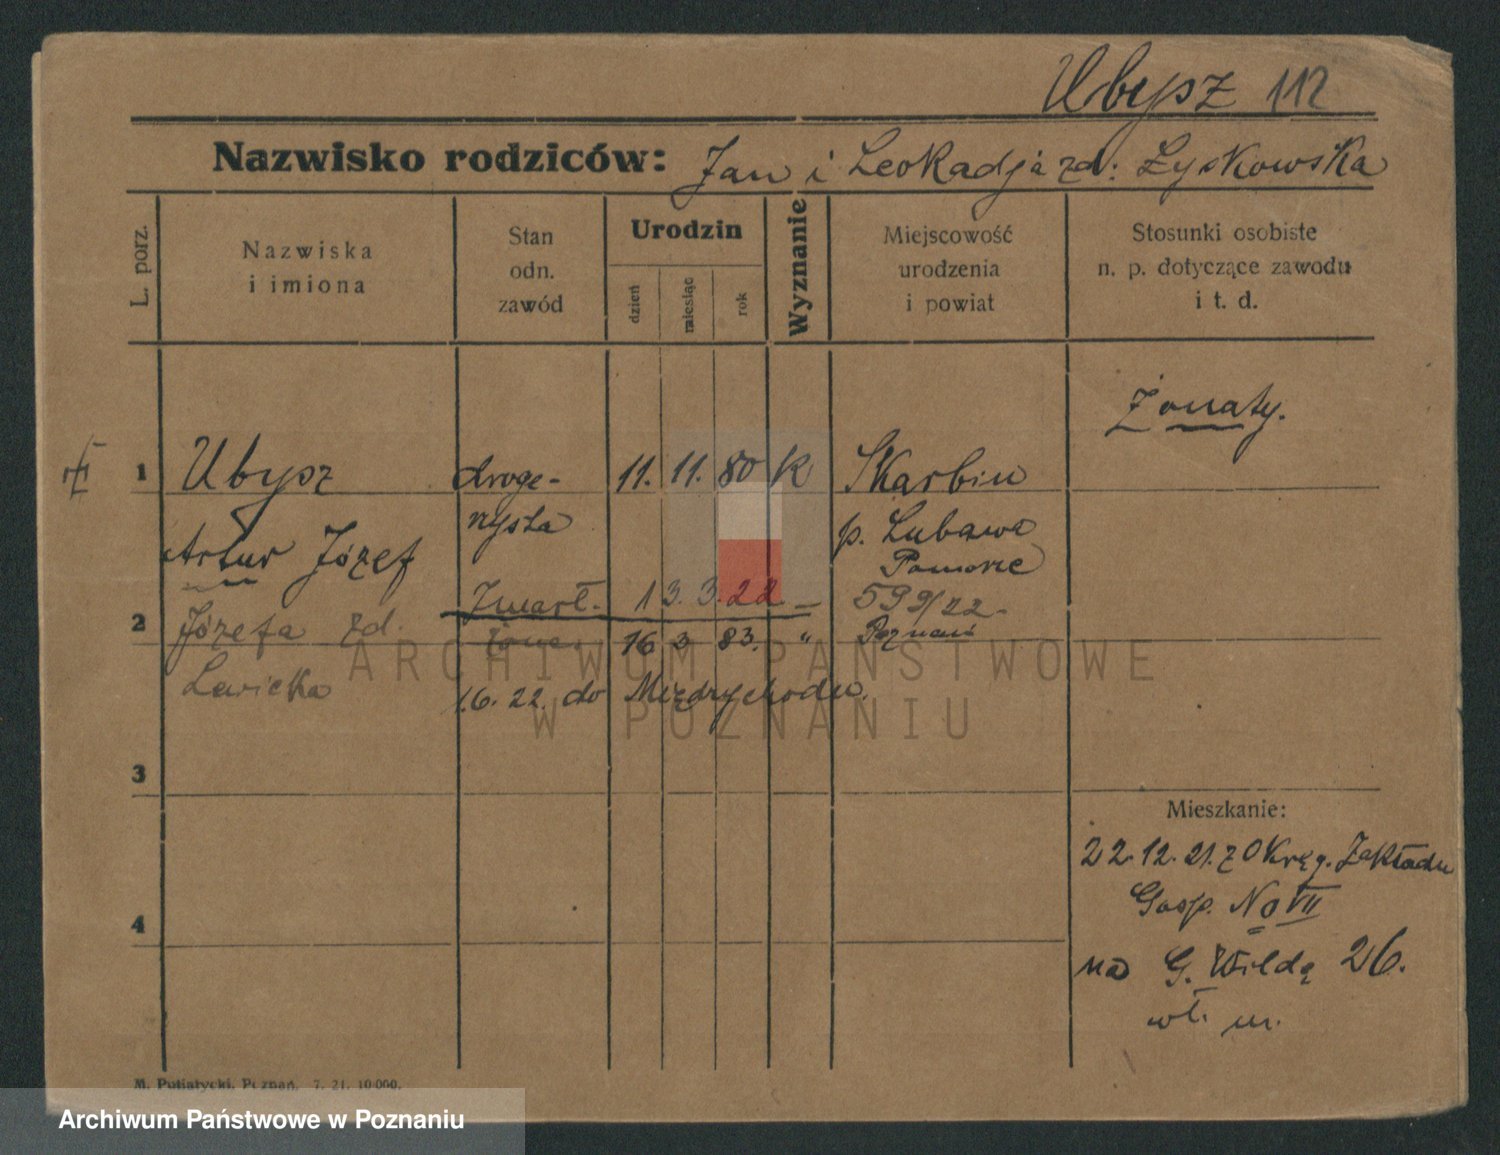 Ubysz 112
Nazwisko rodziców: Jan i Leokadja zd: Łyskowska
L. porz.
Nazwiska
i imiona
Stan
odn.
zawód
Urodzin
dzień
miesiąc
rok
Wyznanie
Miejscowość
urodzenia
i powiat
Stosunki osobiste
n. p. dotyczące zawodu
i t. d.
Żonaty.
1 Ubysz droge- 11. 11. 80 K Skarbin
rzysta p. Lubawa
Artur Józef Pomorze
Zmarł. 13. 3. 22 – 599/22.
2 Józefa zd. żona. 16 3 83. " Poznań
Lewicka 1.6.22. do Międzychodu.
3
4
Mieszkanie:
22.12.21. z Okręg. Zakładu
Gosp. No VII
na G. Wildą 26.
wł. m.
M. Putiatycki, Poznań, 7. 21. 10000.
ARCHIWUM PAŃSTWOWE
W POZNANIU
Archiwum Państwowe w Poznaniu